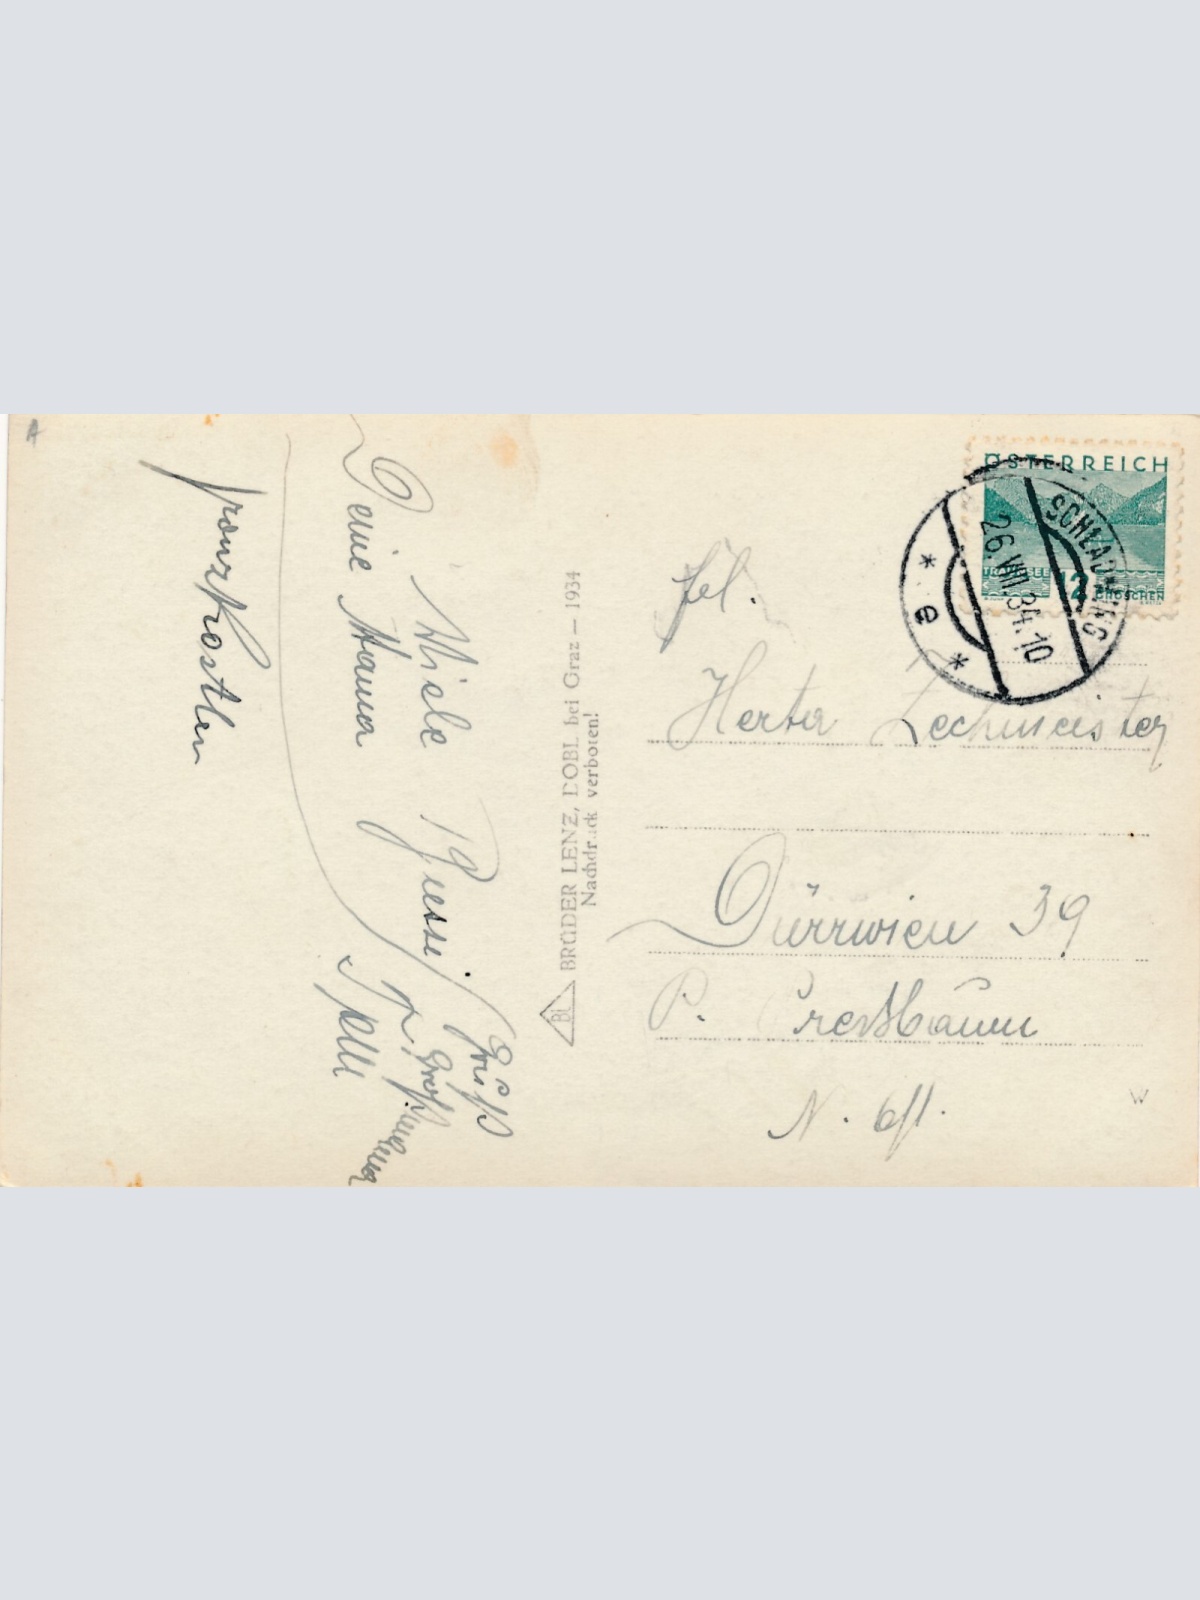 Viele Grüsse!
Deine Hanna
Grüß
Großmama
BRÜDER LENZ, DOBL bei Graz – 1934
Nachdruck verboten!
BL
ÖSTERREICH
TRAUNSEE
12 GROSCHEN
SCHLADMING
26.VIII.34.10
* e *
Frl.
Herta Lechmeister
Dürrwien 39
P. Pressbaum
N. Öst.
A
W